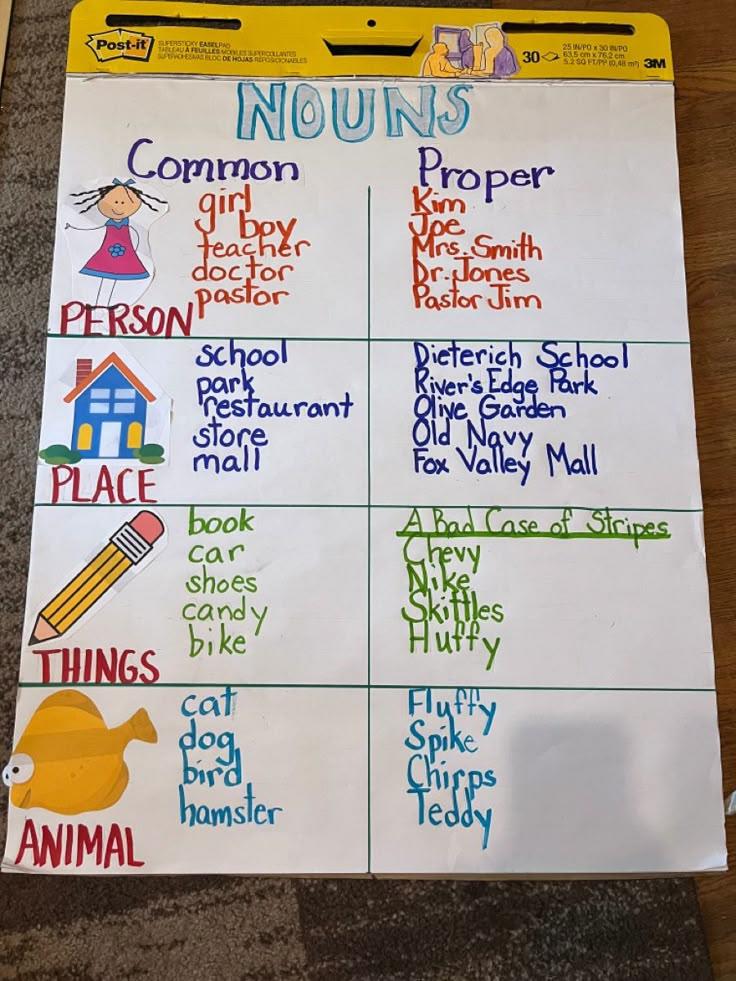 Post-it
SUPERSTICKY EASELPAD
TABLEAU À FEUILLES MOBILES SUPERCOLLANTES
SUPERADHESIVAS BLOC DE HOJAS REPOSICIONABLES
30
25 IN/PO x 30 IN/PO
63,5 cm x 76,2 cm
5.2 SQ FT/PI² (0,48 m²)
3M
NOUNS
Common
girl
boy
teacher
doctor
pastor
PERSON
Proper
Kim
Joe
Mrs. Smith
Dr. Jones
Pastor Jim
school
park
restaurant
store
mall
PLACE
Dieterich School
River's Edge Park
Olive Garden
Old Navy
Fox Valley Mall
book
car
shoes
candy
bike
THINGS
A Bad Case of Stripes
Chevy
Nike
Skittles
Huffy
cat
dog
bird
hamster
ANIMAL
Fluffy
Spike
Chirps
Teddy